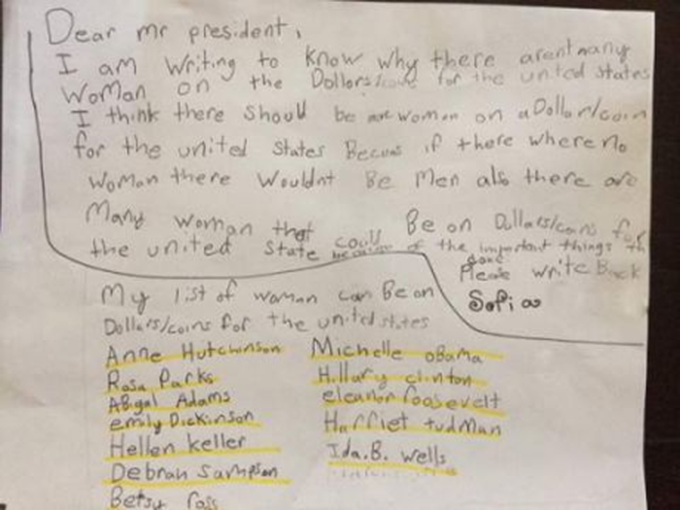 Dear mr president,
I am writing to know why there arent many
woman on the Dollars/coins for the united states
I think there should be one woman on a Dollar/coin
for the united states Becuas if there where no
woman there wouldnt Be Men also there are
Many woman that could Be on Dollars/coins for
the united state because of the important things
done
Please write Back
Sofia
My list of woman can Be on
Dollars/coins for the united states
Anne Hutchinson
Rosa Parks
Abigal Adams
emily Dickinson
Hellen keller
Debran sampson
Betsy Ross
Michelle obama
Hillary clinton
eleanor roosevelt
Harriet tudman
Ida.B. wells